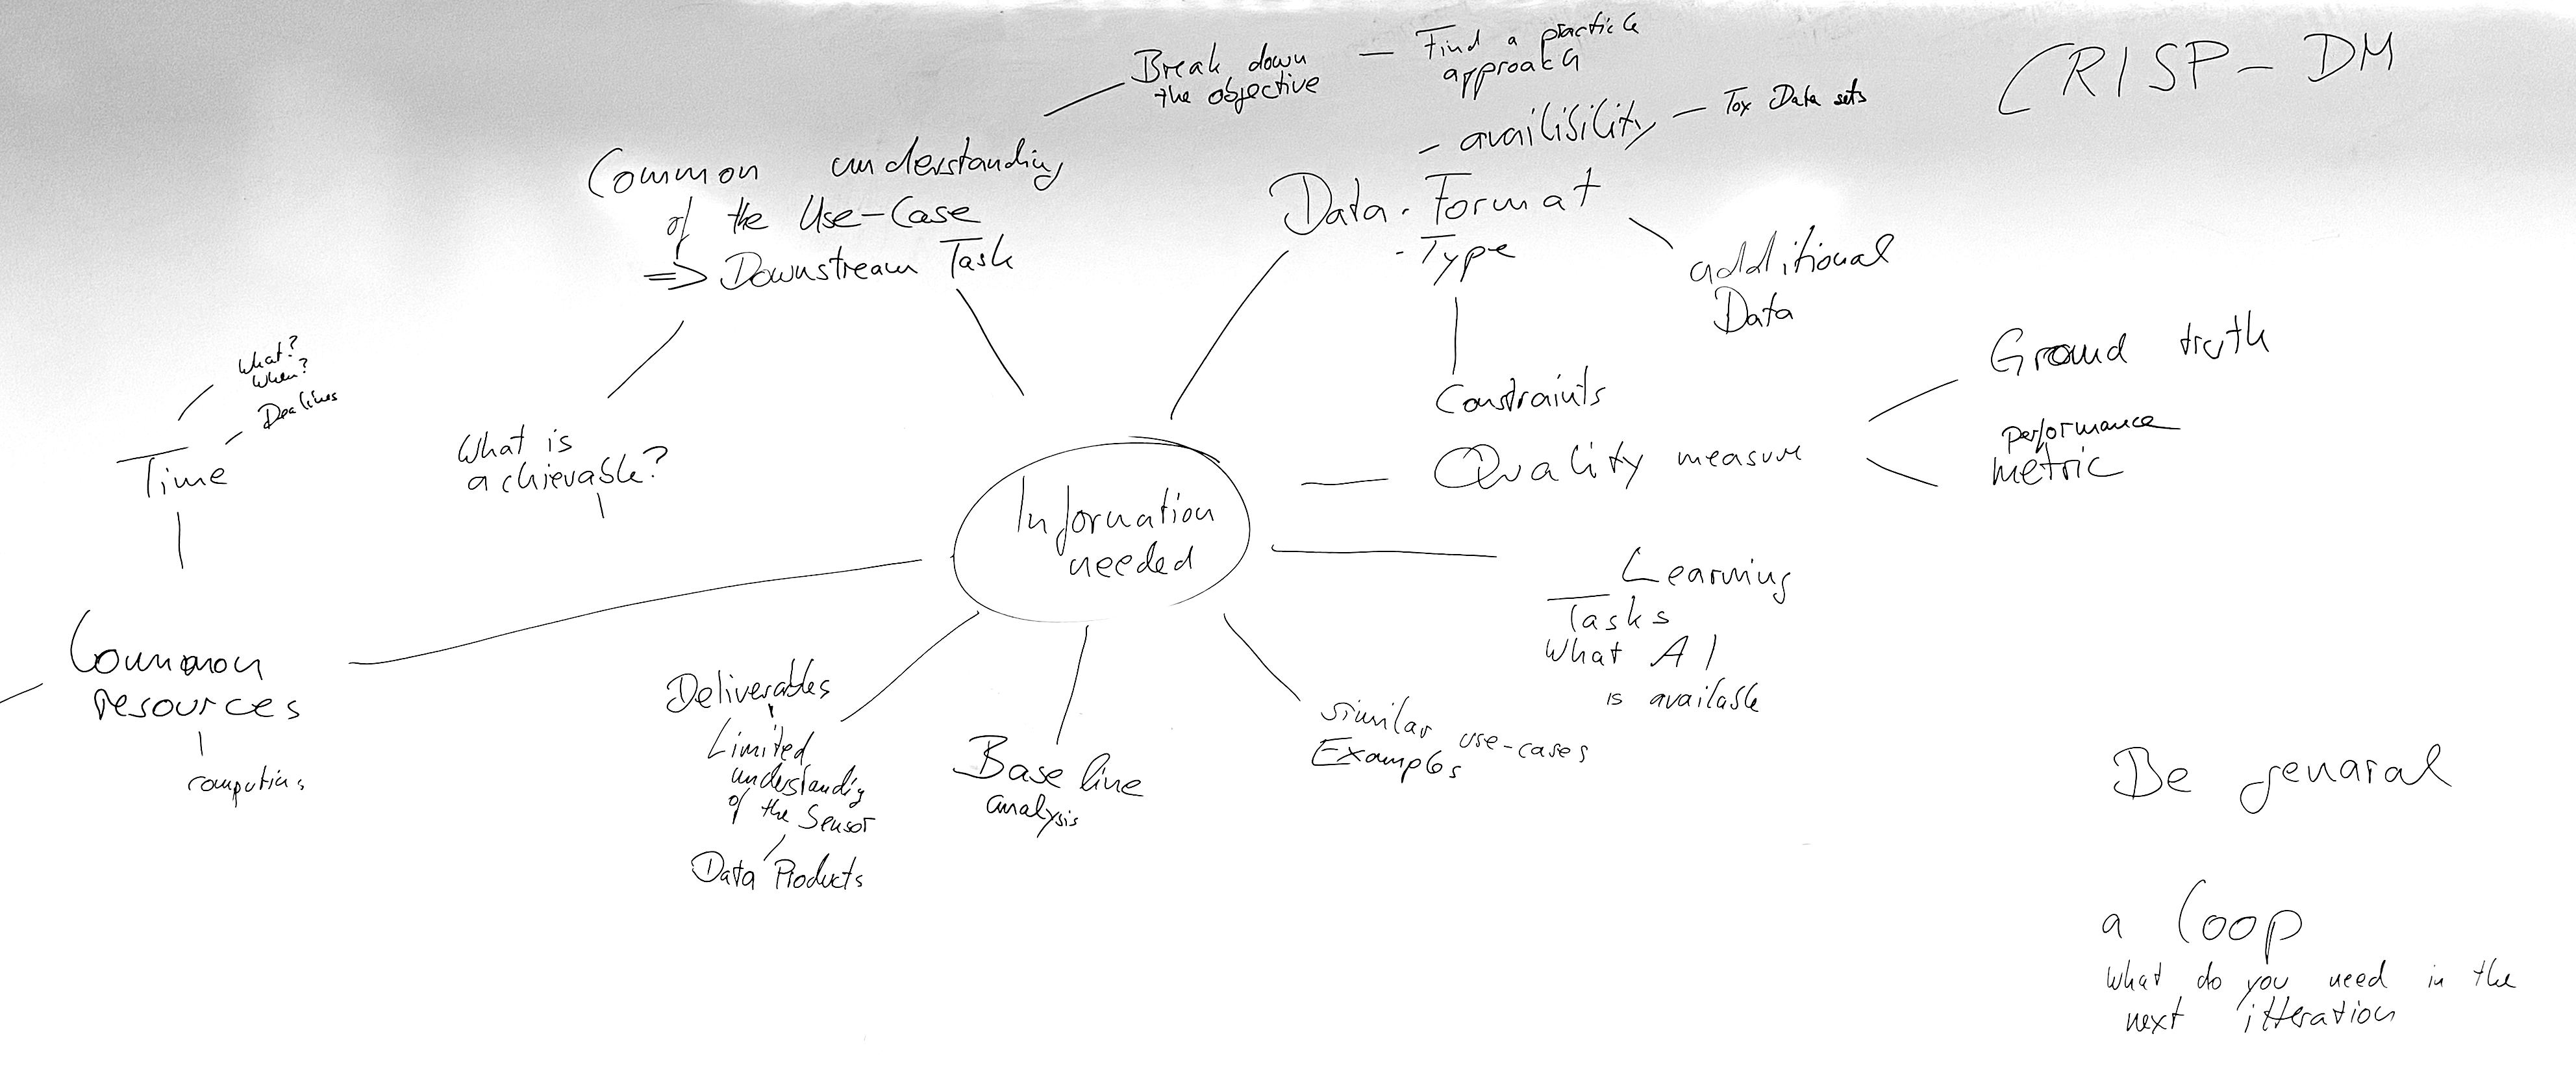 Break down
the objective
Find a practicle
approach
CRISP-DM
- availibility - Tox Data sets
Common understanding
of the Use-Case
=> Downstream Task
Data - Format
- Type
additional
Data
Constraints
What?
When?
Dealines
Time
What is
achievable?
Quality measure
Ground truth
performance
metric
Information
needed
Learning
Tasks
What AI
is available
Common
resources
computing
Deliverables
Limited
understanding
of the Sensor
Data Products
Base line
analysis
similar use-cases
Examples
Be genaral
a loop
What do you need in the
next itteration